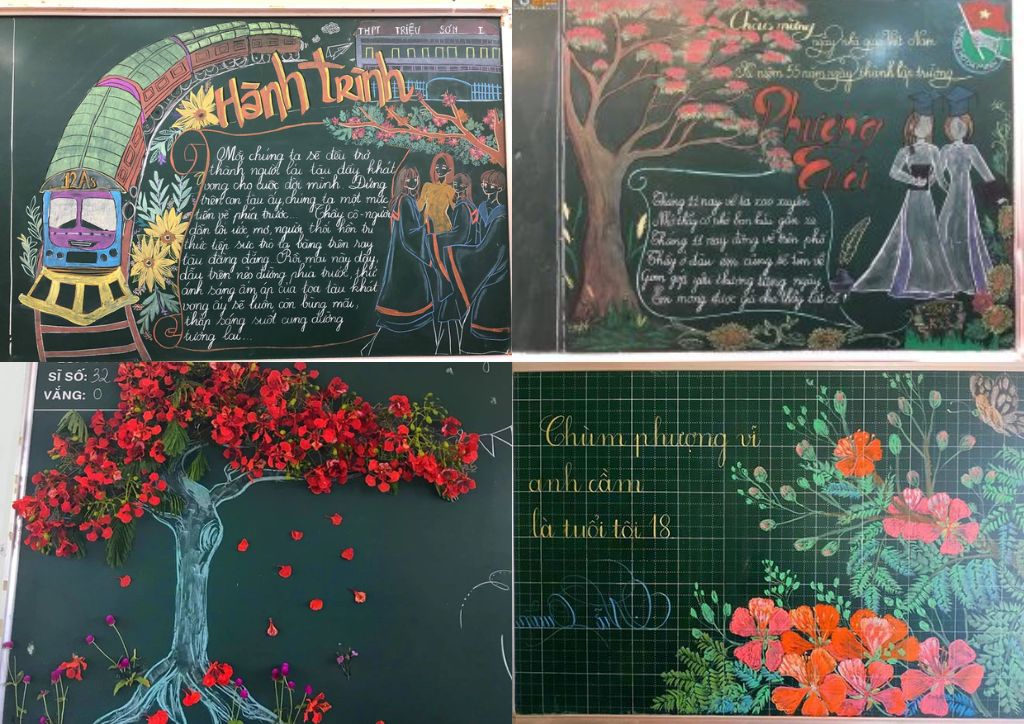 THPT TRIỆU SƠN I
Hành trình
12A5
Mỗi chúng ta sẽ đều trở
thành người lái tàu đầy khát
vọng cho cuộc đời mình. Đứng
trên con tàu ấy chúng ta một mực
tiến về phía trước... Thầy cô-người
dẫn lối ước mơ, người thổi hồn tri
thức tiếp sức trò ta băng trên ray
tàu đằng đẵng. Rồi mai này đây,
dẫu trên nẻo đường phía trước, thứ
ánh sáng ấm áp của toa tàu khát
vọng ấy sẽ luôn còn bùng mãi,
thắp sáng suốt cung đường
tương lai...
Chào mừng
ngày nhà giáo Việt Nam
Kỉ niệm 55 năm ngày thành lập trường
Phượng
Cuối
Tháng 11 nay về lá xao xuyến
Một thầy cô nhỏ bên
Tháng 11 nay đông về trên phố
Thầy ở đâu em cũng sẽ tìm về
Gom góp yêu thương từng ngày
Em mong được
SĨ SỐ: 32
VẮNG: 0
Chùm phượng vĩ
anh cầm
là tuổi tôi 18